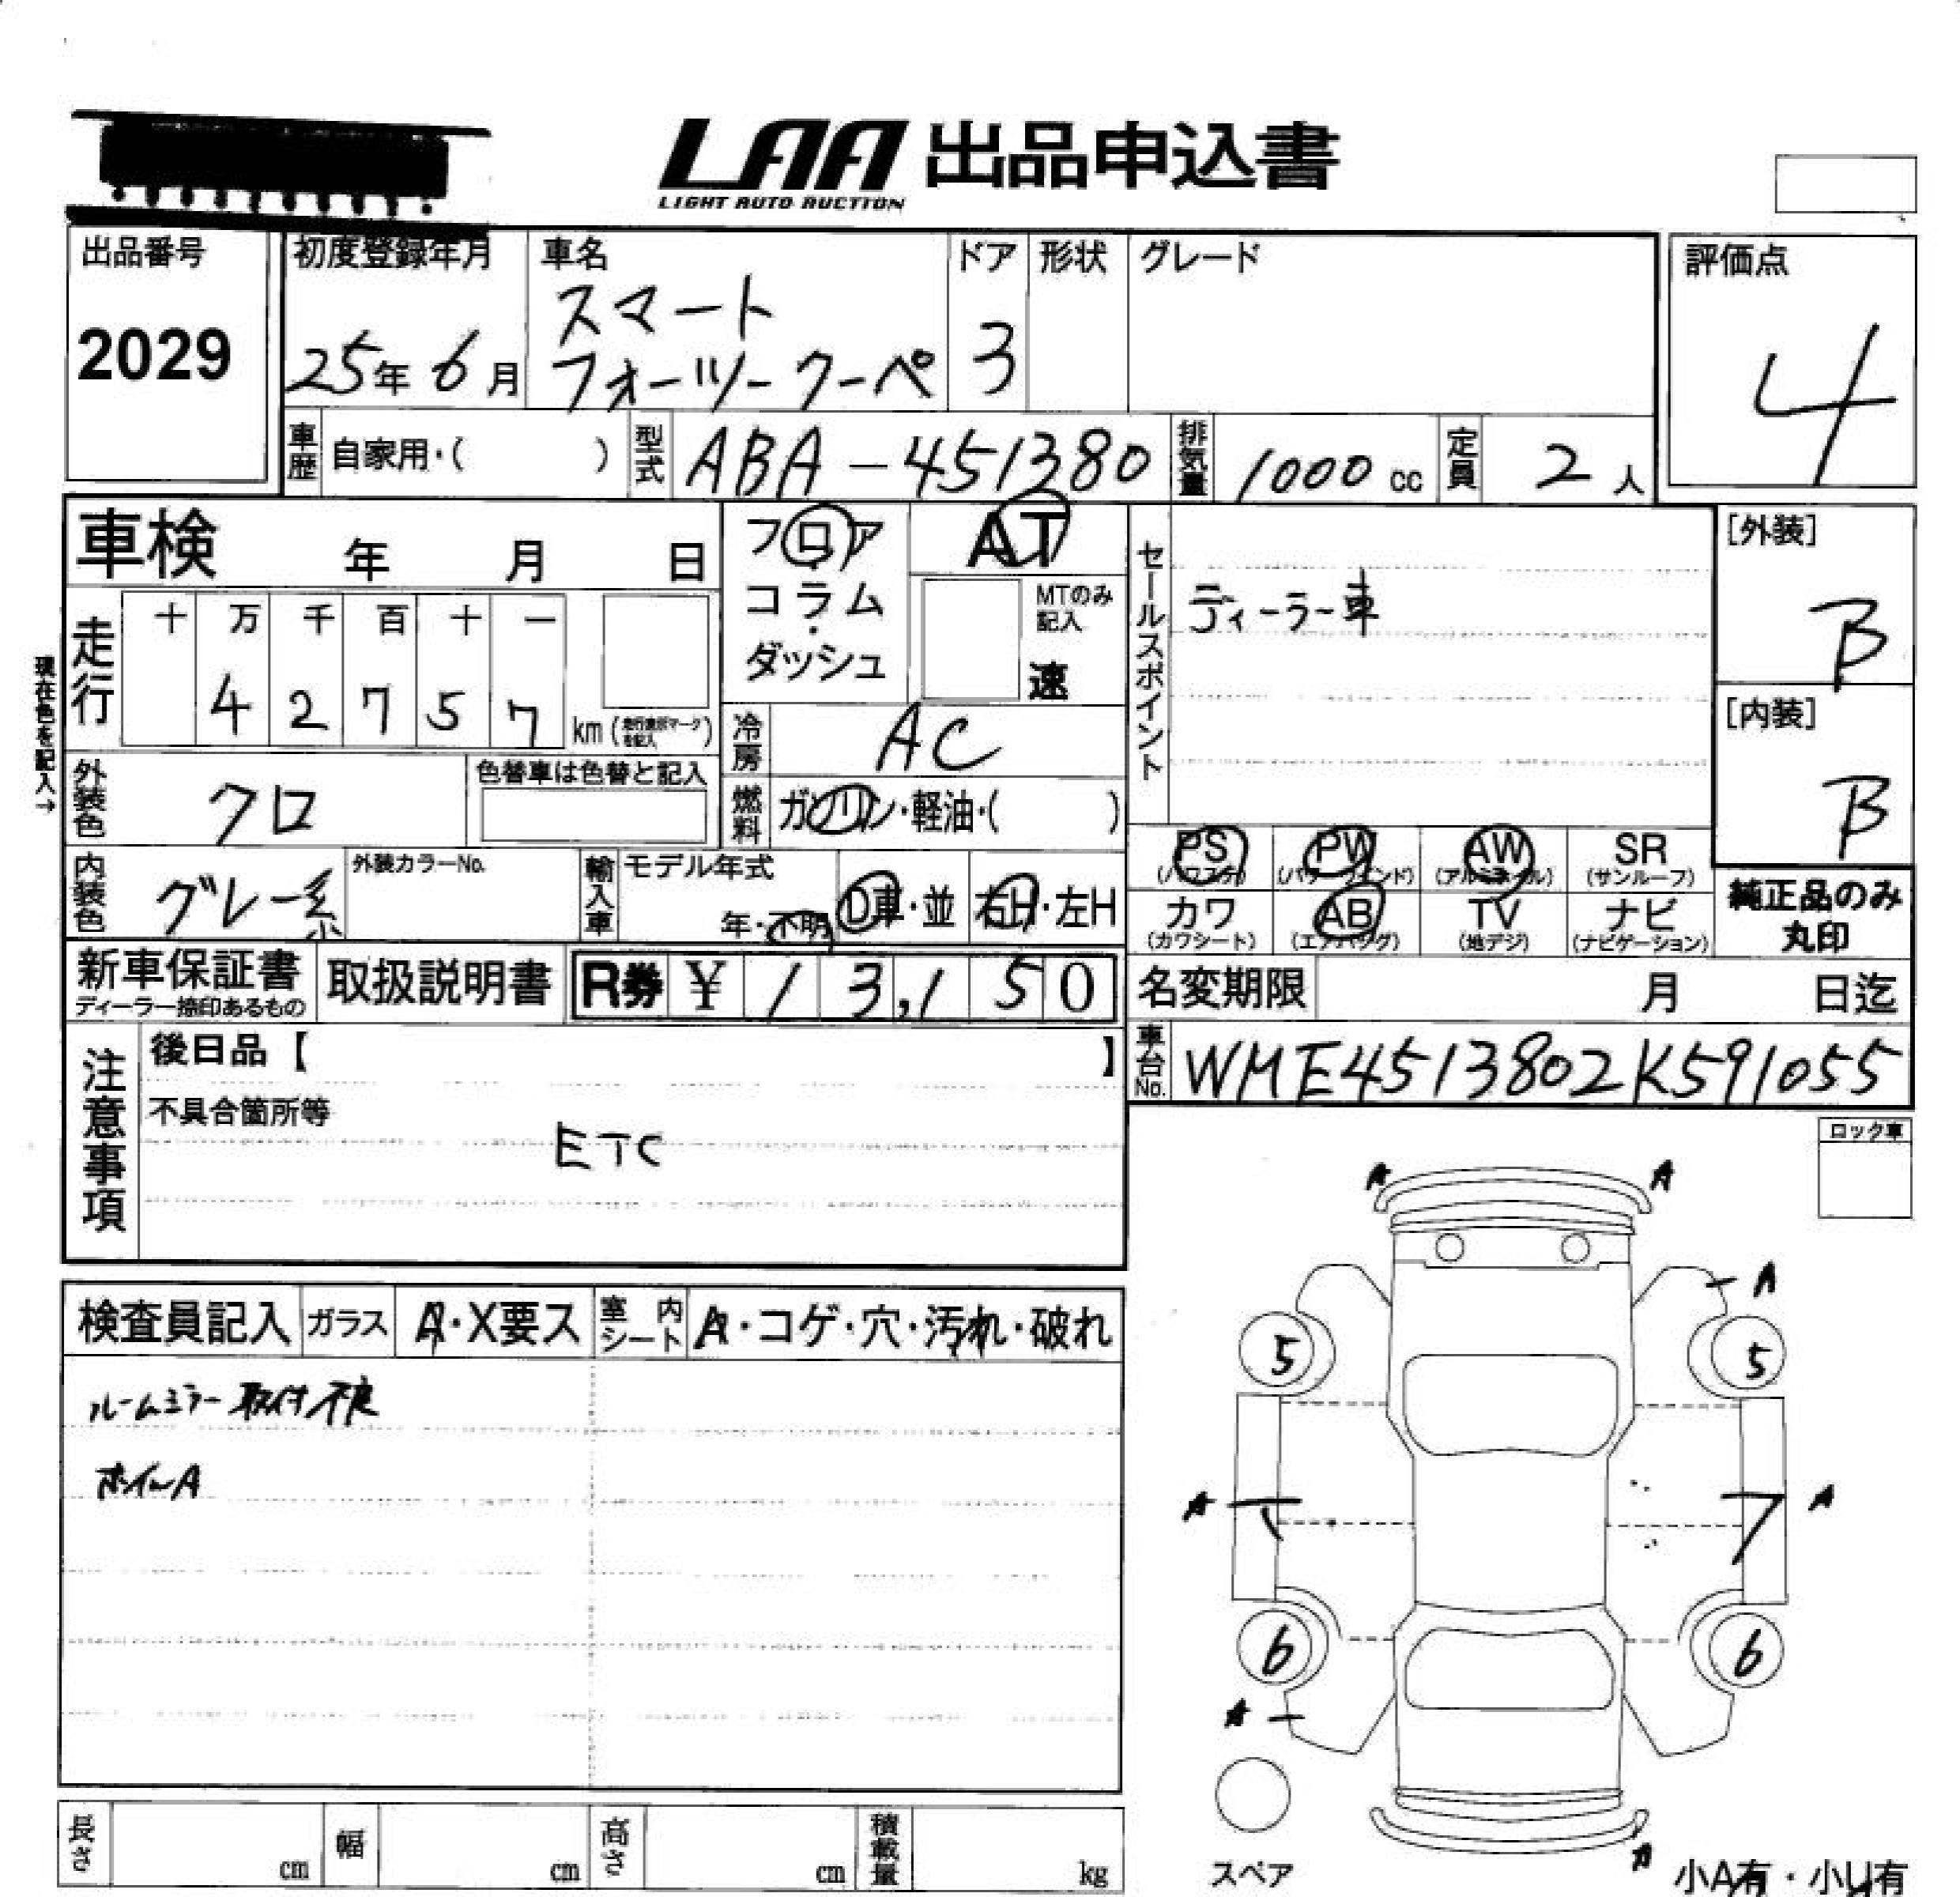 LAA 出品申込書
LIGHT AUTO AUCTION
出品番号
2029
初度登録年月
25年 6月
車名
スマート
フォーツークーペ
ドア
3
形状
グレード
評価点
4
車歴
自家用・( )
型式
ABA-451380
排気量
1000 cc
定員
2 人
車検 年 月 日
フロア
コラム
・
ダッシュ
AT
MTのみ
記入
速
セールスポイント
ディーラー車
[外装]
B
[内装]
B
現在色を記入→
走行
十 万 千 百 十 一
4 2 7 5 7
km (
を記入 )
冷房
AC
外装色
クロ
色替車は色替と記入
燃料
ガソリン・軽油・( )
内装色
グレー系
外装カラーNo.
輸入車
モデル年式
年・不明
D車・並
右H・左H
PS
(パワステ)
PW
(パワーウインド)
AW
(アルミホイル)
SR
(サンルーフ)
カワ
(カワシート)
AB
(エアバッグ)
TV
(地デジ)
ナビ
(ナビゲーション)
純正品のみ
丸印
新車保証書
ディーラー捺印あるもの
取扱説明書
R券 ¥ 13,150
名変期限 月 日迄
車台No.
WME4513802K591055
注意事項
後日品【 】
不具合箇所等
ETC
ロック車
検査員記入
ガラス
A・X要ス
室内
シート
A・コゲ・穴・汚れ・破れ
ルームミラー取付不良
ホイルA
A A
A
5 5
A A
6 6
A
A
スペア
小A有・小U有
長さ cm
幅 cm
高さ cm
積載量 kg